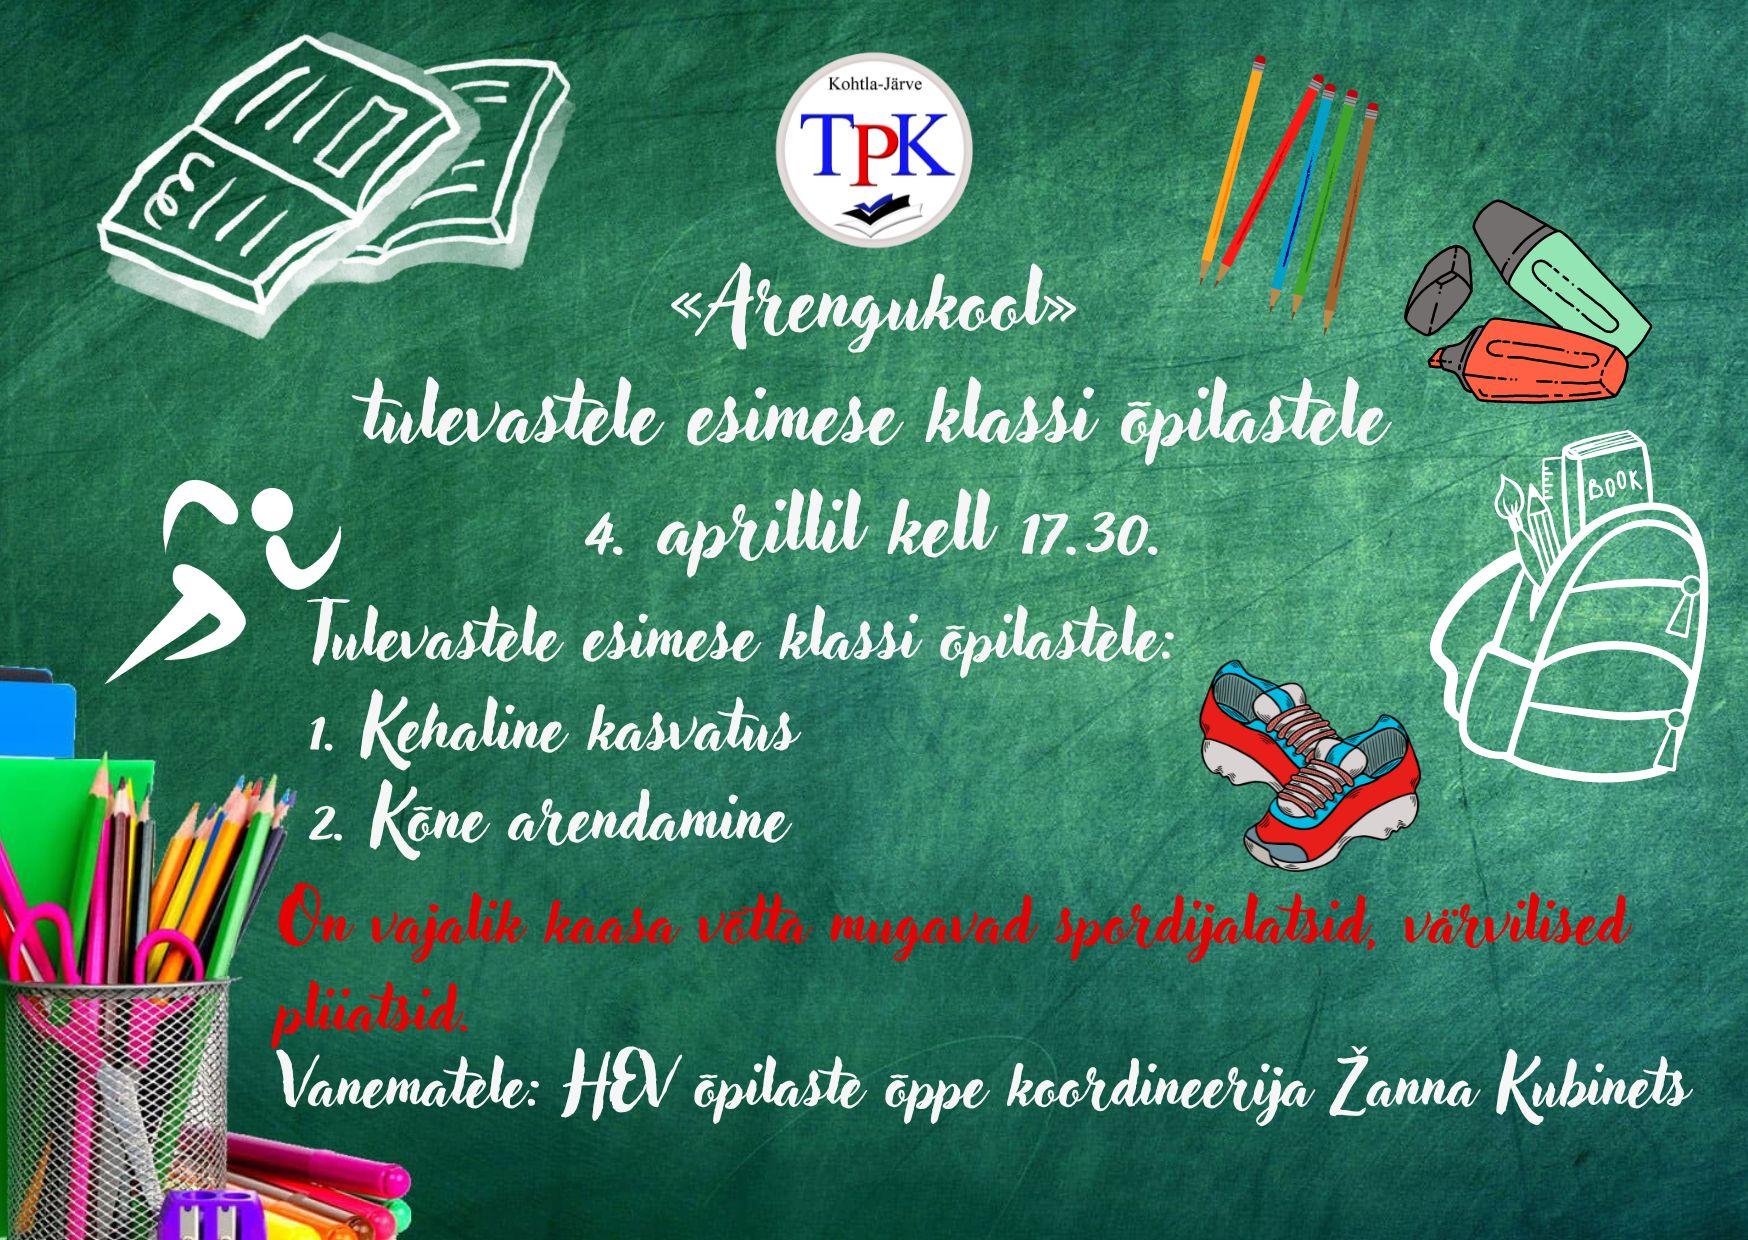 Kohtla-Järve
TPK
«Arengukool»
tulevastele esimese klassi õpilastele
4. aprillil kell 17.30.
BOOK
Tulevastele esimese klassi õpilastele:
1. Kehaline kasvatus
2. Kõne arendamine
On vajalik kaasa võtta mugavad spordijalatsid, värvilised
pliiatsid.
Vanematele: HEV õpilaste õppe koordineerija Žanna Kubinets